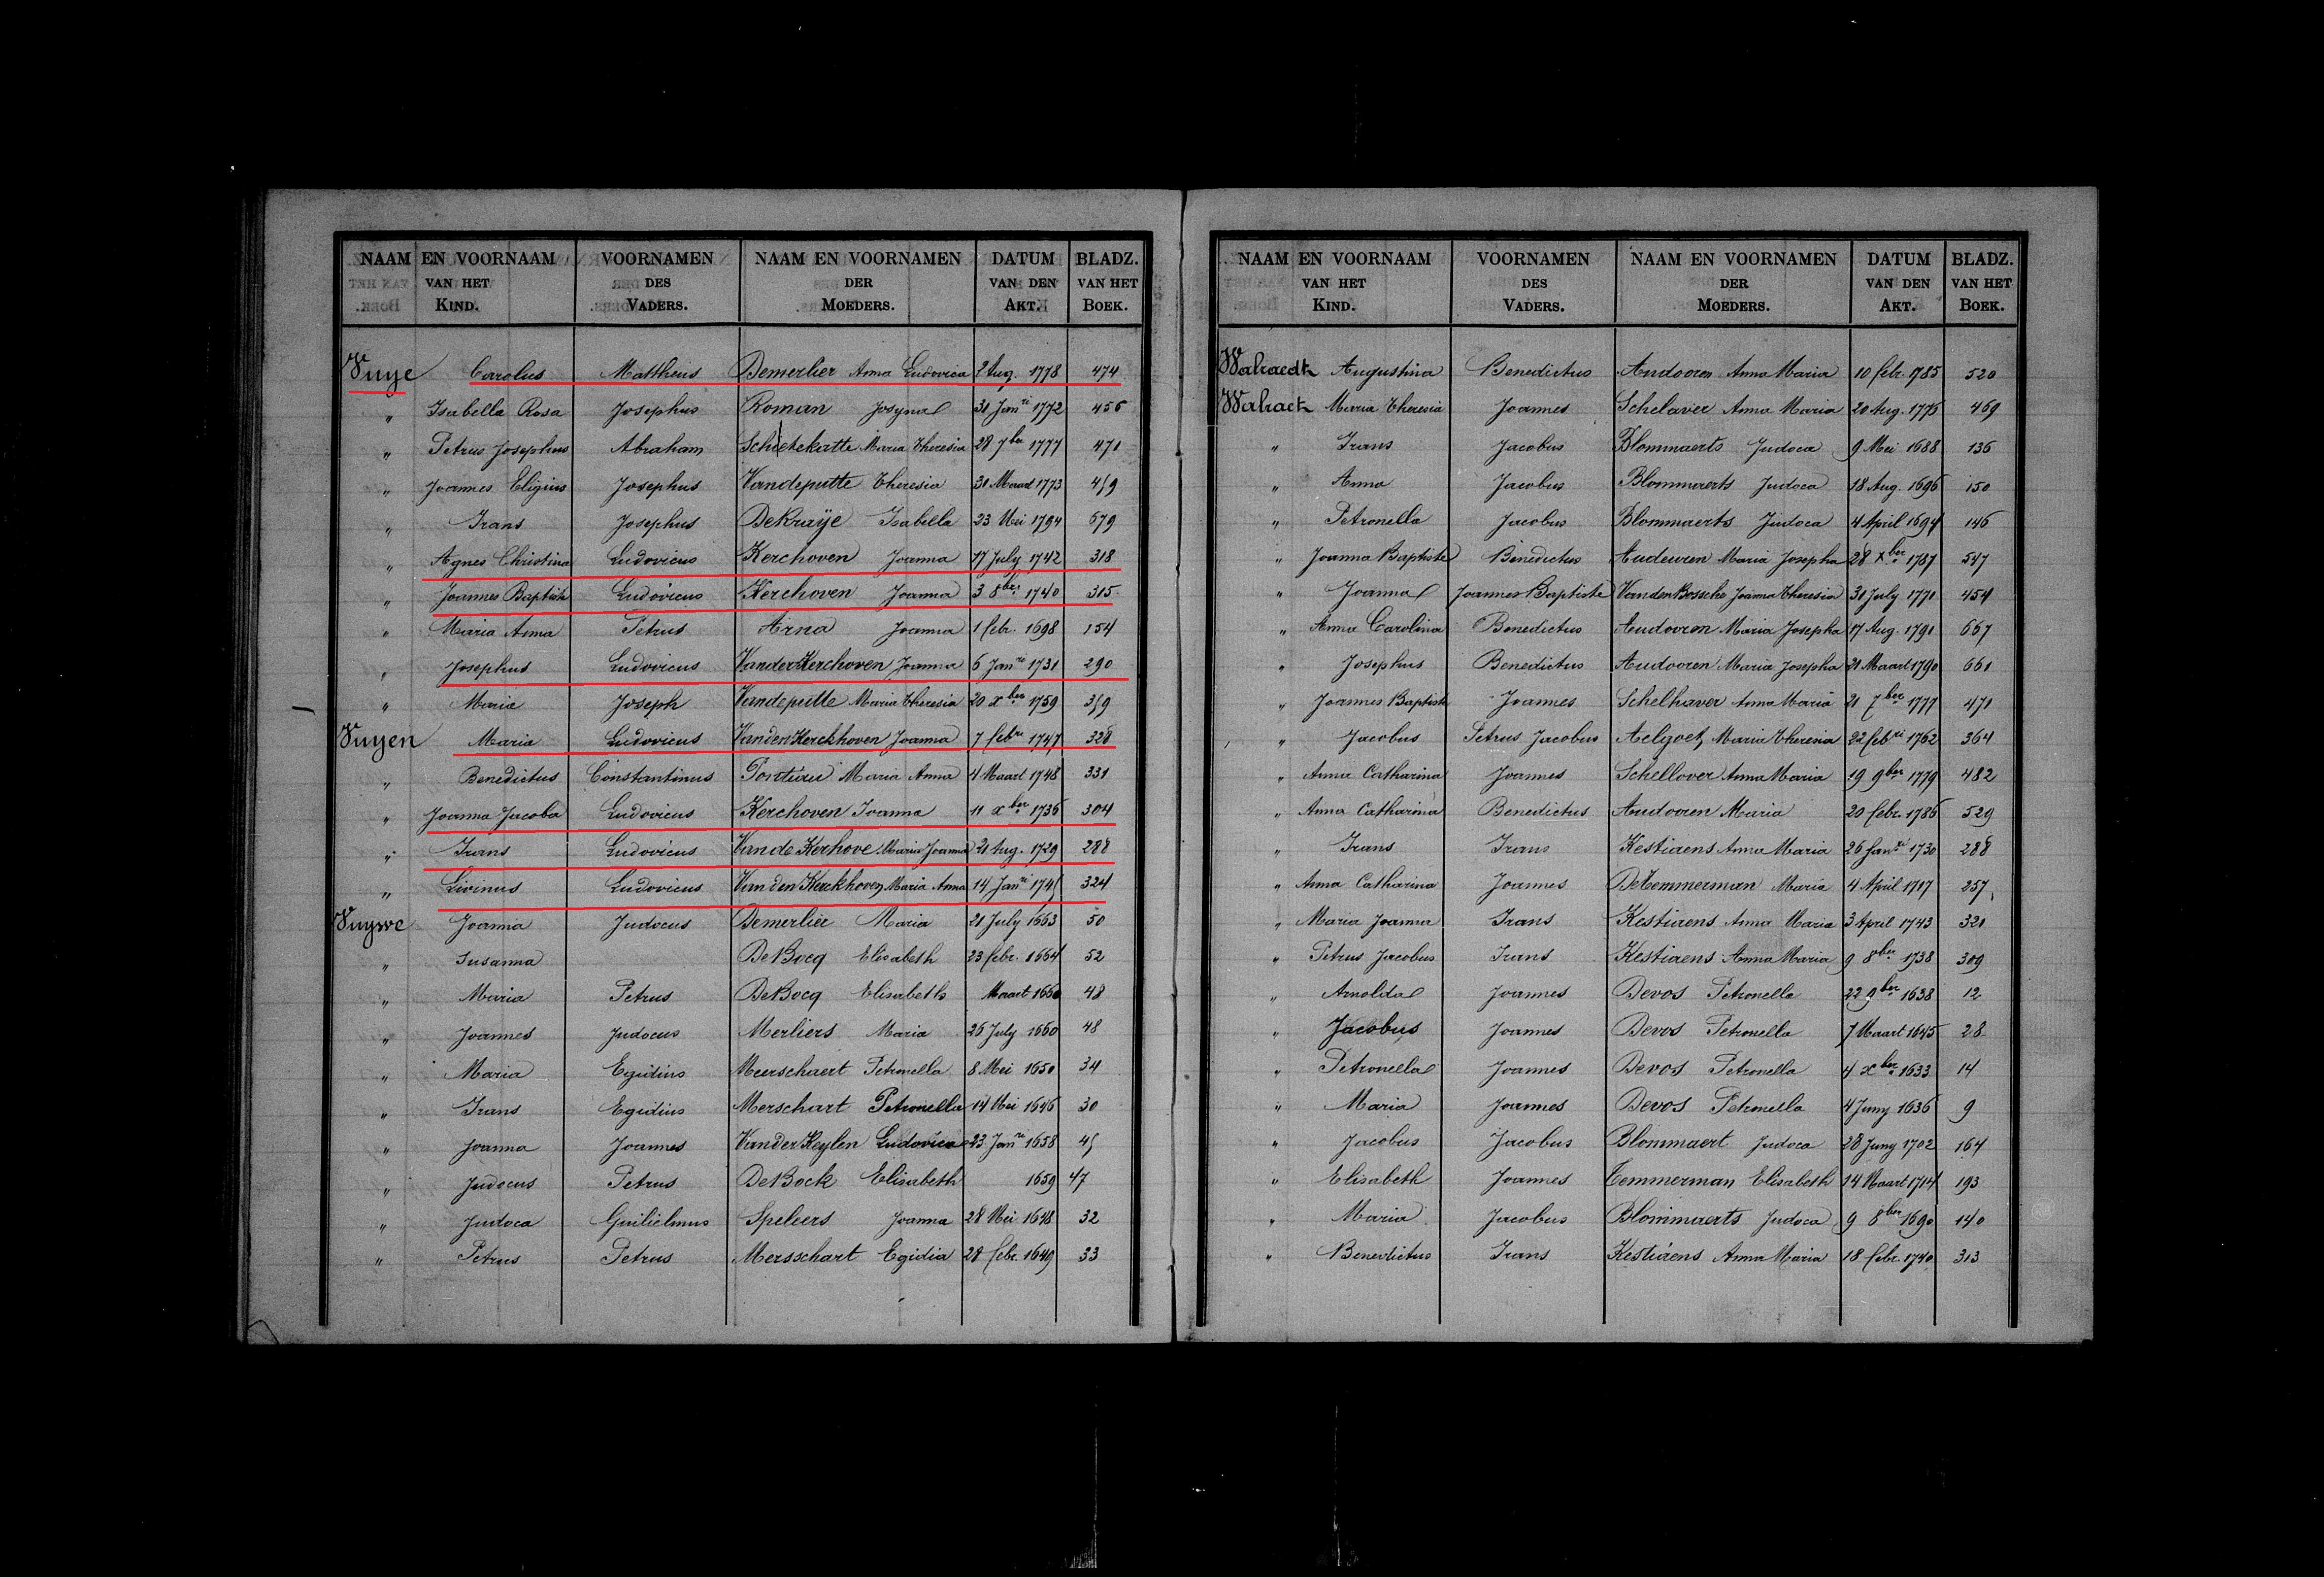 NAAM EN VOORNAAM VAN HET KIND. VOORNAMEN DES VADERS. NAAM EN VOORNAMEN DER MOEDERS. DATUM VAN DEN AKT. BLADZ. VAN HET BOEK.
Vuye Carolus Mattheus Demerlier Anna Ludovica 2 Aug. 1778 474
„ Isabella Rosa Josephus Roman Josyna 31 Janri 1772 456
„ Petrus Josephus Abraham Schietekatte Maria Theresia 28 7ber 1777 471
„ Joannes Eligius Josephus Vandeputte Theresia 31 Maart 1773 459
„ Frans Josephus DeKruÿe Isabella 23 Mei 1794 679
„ Agnes Christina Ludovicus Kerchoven Joanna 17 July 1742 318
„ Joannes Baptist Ludovicus Kerchoven Joanna 3 8ber 1740 315
„ Maria Anna Petrus Arna Joanna 1 febr. 1698 154
„ Josephus Ludovicus VanderKerchoven Joanna 6 Janri 1731 290
„ Maria Joseph Vandeputte Maria Theresia 20 xber 1759 359
Vuyen Maria Ludovicus VandenKerckhoven Joanna 7 febri 1747 328
„ Benedictus Constantinus Maria Anna 4 Maart 1748 331
„ Joanna Jacoba Ludovicus Kerchoven Joanna 11 xber 1736 304
„ Frans Ludovicus Vande Kerhove Maria Joanna 21 Aug. 1729 288
„ Livinus Ludovicus Van den Kerckhoven Maria Anna 14 Janri 1745 324
Vuywe Joanna Judocus Demerlier Maria 21 July 1663 50
„ Susanna DeBocq Elisabeth 23 febr. 1664 52
„ Maria Petrus DeBocq Elisabeth Maart 1660 48
„ Joannes Judocus Merliers Maria 26 July 1660 48
„ Maria Egidius Meerschaert Petronella 8 Mei 1650 34
„ Frans Egidius Merschart Petronella 14 Mei 1646 30
„ Joanna Joannes VanderKeylen Ludovica 23 Janri 1658 45
„ Judocus Petrus DeBock Elisabeth 1659 47
„ Judoca Guilielmus Speleers Joanna 28 Mei 1648 32
„ Petrus Petrus Messchart Egidia 28 febr. 1649 33
NAAM EN VOORNAAM VAN HET KIND. VOORNAMEN DES VADERS. NAAM EN VOORNAMEN DER MOEDERS. DATUM VAN DEN AKT. BLADZ. VAN HET BOEK.
Walraedt Augustina Benedictus Audooren Anna Maria 10 febr. 1785 520
Walraet Maria Theresia Joannes Schelaver Anna Maria 20 Aug. 1776 469
„ Frans Jacobus Blommaerts Judoca 9 Mei 1688 136
„ Anna Jacobus Blommaerts Judoca 18 Aug. 1696 150
„ Petronella Jacobus Blommaerts Judoca 4 April 1694 146
„ Joanna Baptiste Benedictus Audeuren Maria Josepha 28 xber 1787 547
„ Joanna Joannes Baptiste VandenBossche Joanna Theresia 31 July 1771 454
„ Anna Carolina Benedictus Audooren Maria Josepha 17 Aug. 1791 667
„ Josephus Benedictus Audooren Maria Josepha 21 Maart 1790 661
„ Joannes Baptist Joannes Schelhaver Anna Maria 21 7ber 1777 471
„ Jacobus Petrus Jacobus Aelgoet Maria Theresia 22 febri 1762 364
„ Anna Catharina Joannes Schellover Anna Maria 19 9ber 1779 482
„ Anna Catharina Benedictus Audooren Maria 20 febr. 1786 529
„ Frans Frans Kestiaens Anna Maria 26 Janri 1730 288
„ Anna Catharina Joannes DeTemmerman Maria 4 April 1717 257
„ Maria Joanna Frans Kestiaens Anna Maria 3 April 1743 320
„ Petrus Jacobus Frans Kestiaens Anna Maria 9 8ber 1738 309
„ Arnolda Joannes Devos Petronella 22 9ber 1638 12
„ Jacobus Joannes Devos Petronella 7 Maart 1645 28
„ Petronella Joannes Devos Petronella 4 xber 1633 14
„ Maria Joannes Devos Petronella 4 Juny 1636 9
„ Jacobus Jacobus Blommaert Judoca 28 Juny 1702 164
„ Elisabeth Joannes Temmerman Elisabeth 14 Maart 1714 193
„ Maria Jacobus Blommaerts Judoca 9 8ber 1690 140
„ Benedictus Frans Kestiaens Anna Maria 18 febr. 1740 313